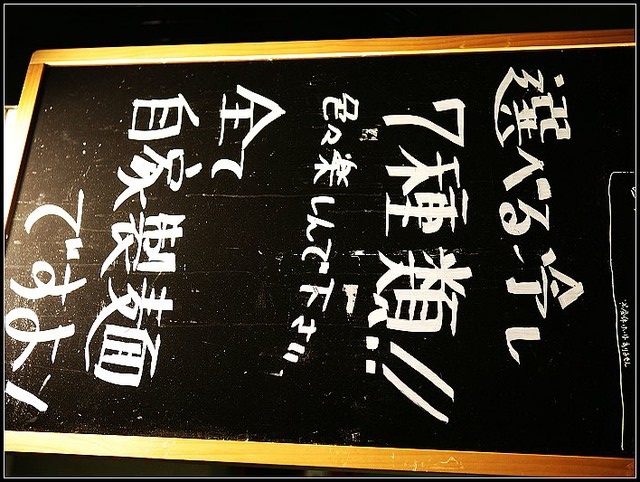 選べる冷し
7種類!!
色々楽しんで下さい、
全て
自家製麺
ですよ!